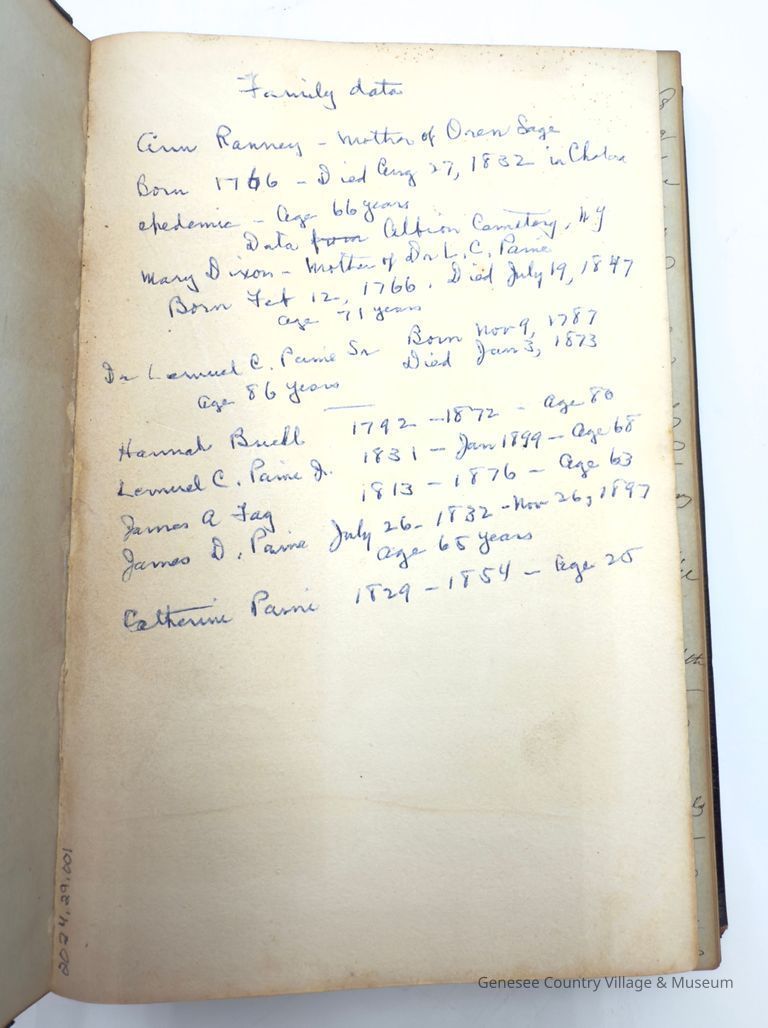 Family data
Ann Ranney - Mother of Oren Sage
Born 1766 - Died Aug 27, 1832 in Cholera
epedemic - Age 66 years
Data from Albion Cemetery, NY
Mary Dixon - Mother of Dr L. C. Paine
Born Feb 12, 1766. Died July 19, 1847
age 71 years
Dr Lemuel C. Paine Sr Born Nov 9, 1787
Died Jan 3, 1873
age 86 years
Hannah Buell 1792 - 1872 - Age 80
Lemuel C. Paine Jr. 1831 - Jan 1899 - Age 68
James A Fag 1813 - 1876 - Age 63
James D. Paine July 26 - 1832 - Nov 26, 1897
age 65 years
Catherine Paine 1829 - 1854 - Age 25
2024.29.001
Genesee Country Village & Museum